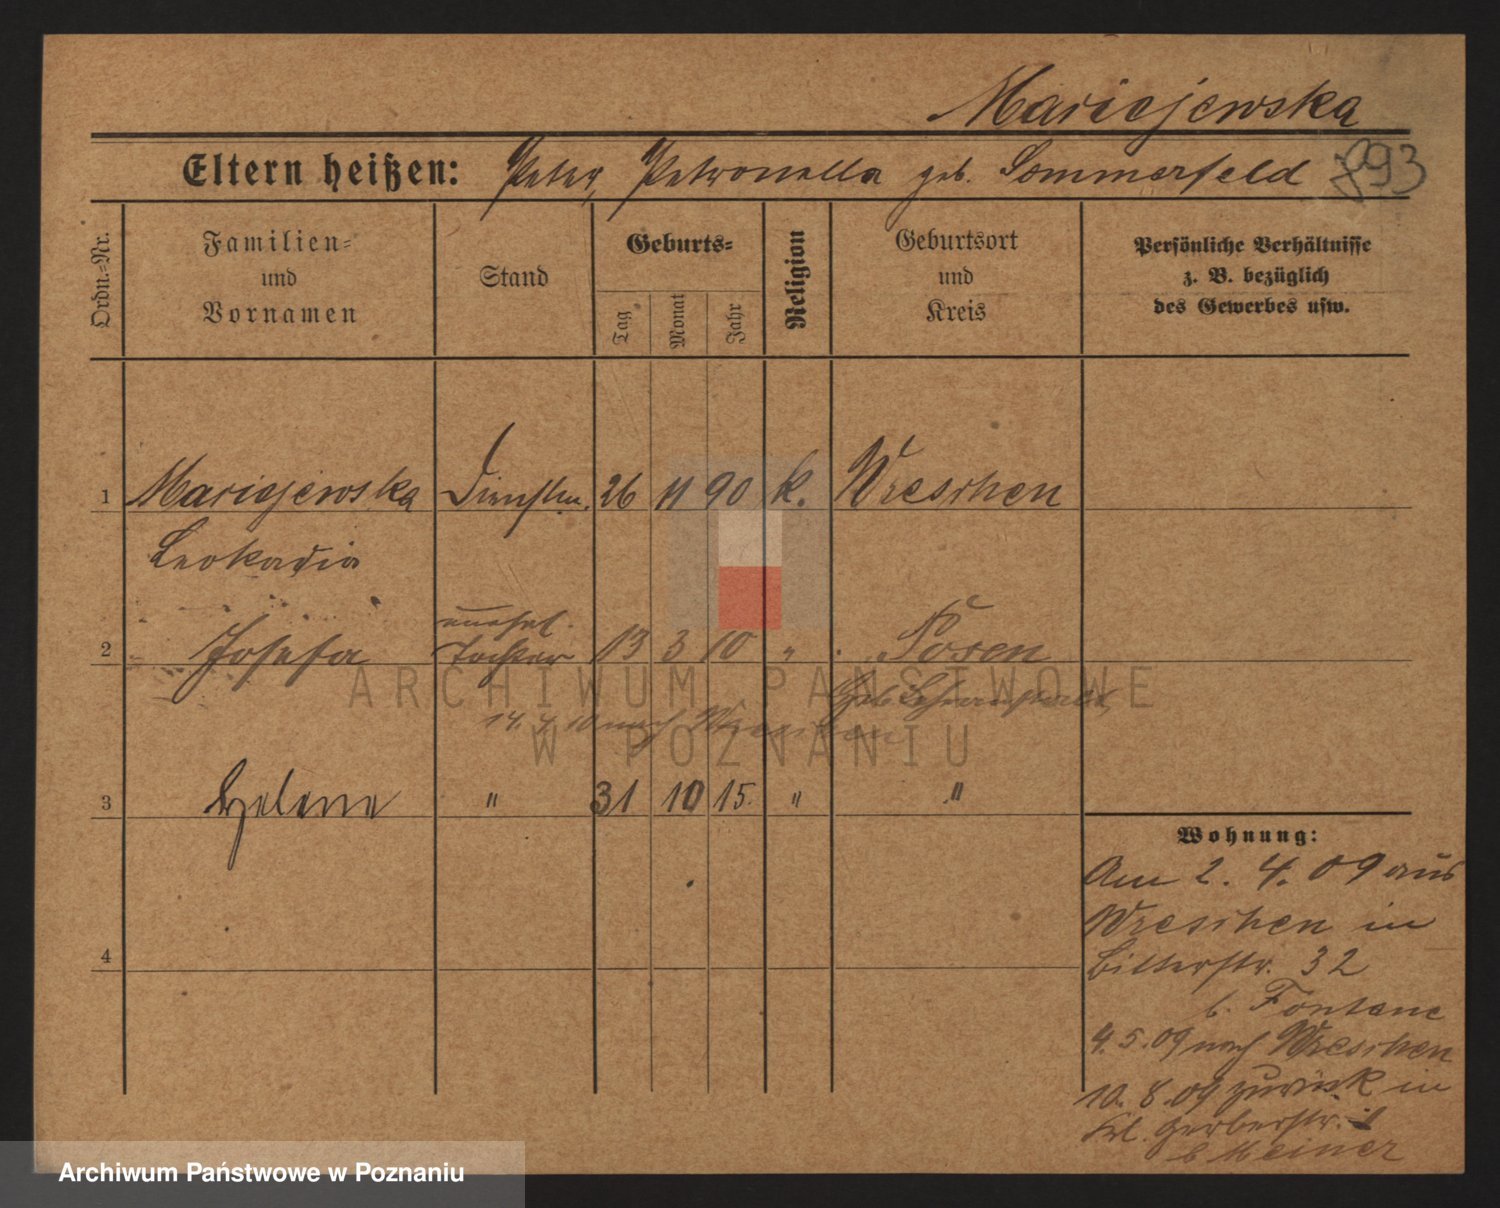 Maciejewska
Eltern heißen: Peter, Petronella geb. Sommerfeld 893
Ordn.-Nr.
Familien-
und
Vornamen
Stand
Geburts-
Tag
Monat
Jahr
Religion
Geburtsort
und
Kreis
Persönliche Verhältnisse
z. B. bezüglich
des Gewerbes usw.
1 Maciejewska Dienstm. 26 11 90 k. Wreschen
Leokadia
unehel.
2 Josefa Tochter 13 3 10 " Posen
14. 4. 10 nach Wreschen
3 Helene " 31 10 15. " "
4
Wohnung:
Am 2. 4. 09 aus
Wreschen in
Bitterstr. 32
b. Fontane
4. 5. 09 nach Wreschen
10. 8. 09 zurück in
Kl. Gerberstr.
b Meiner
ARCHIWUM PAŃSTWOWE
W POZNANIU
Archiwum Państwowe w Poznaniu